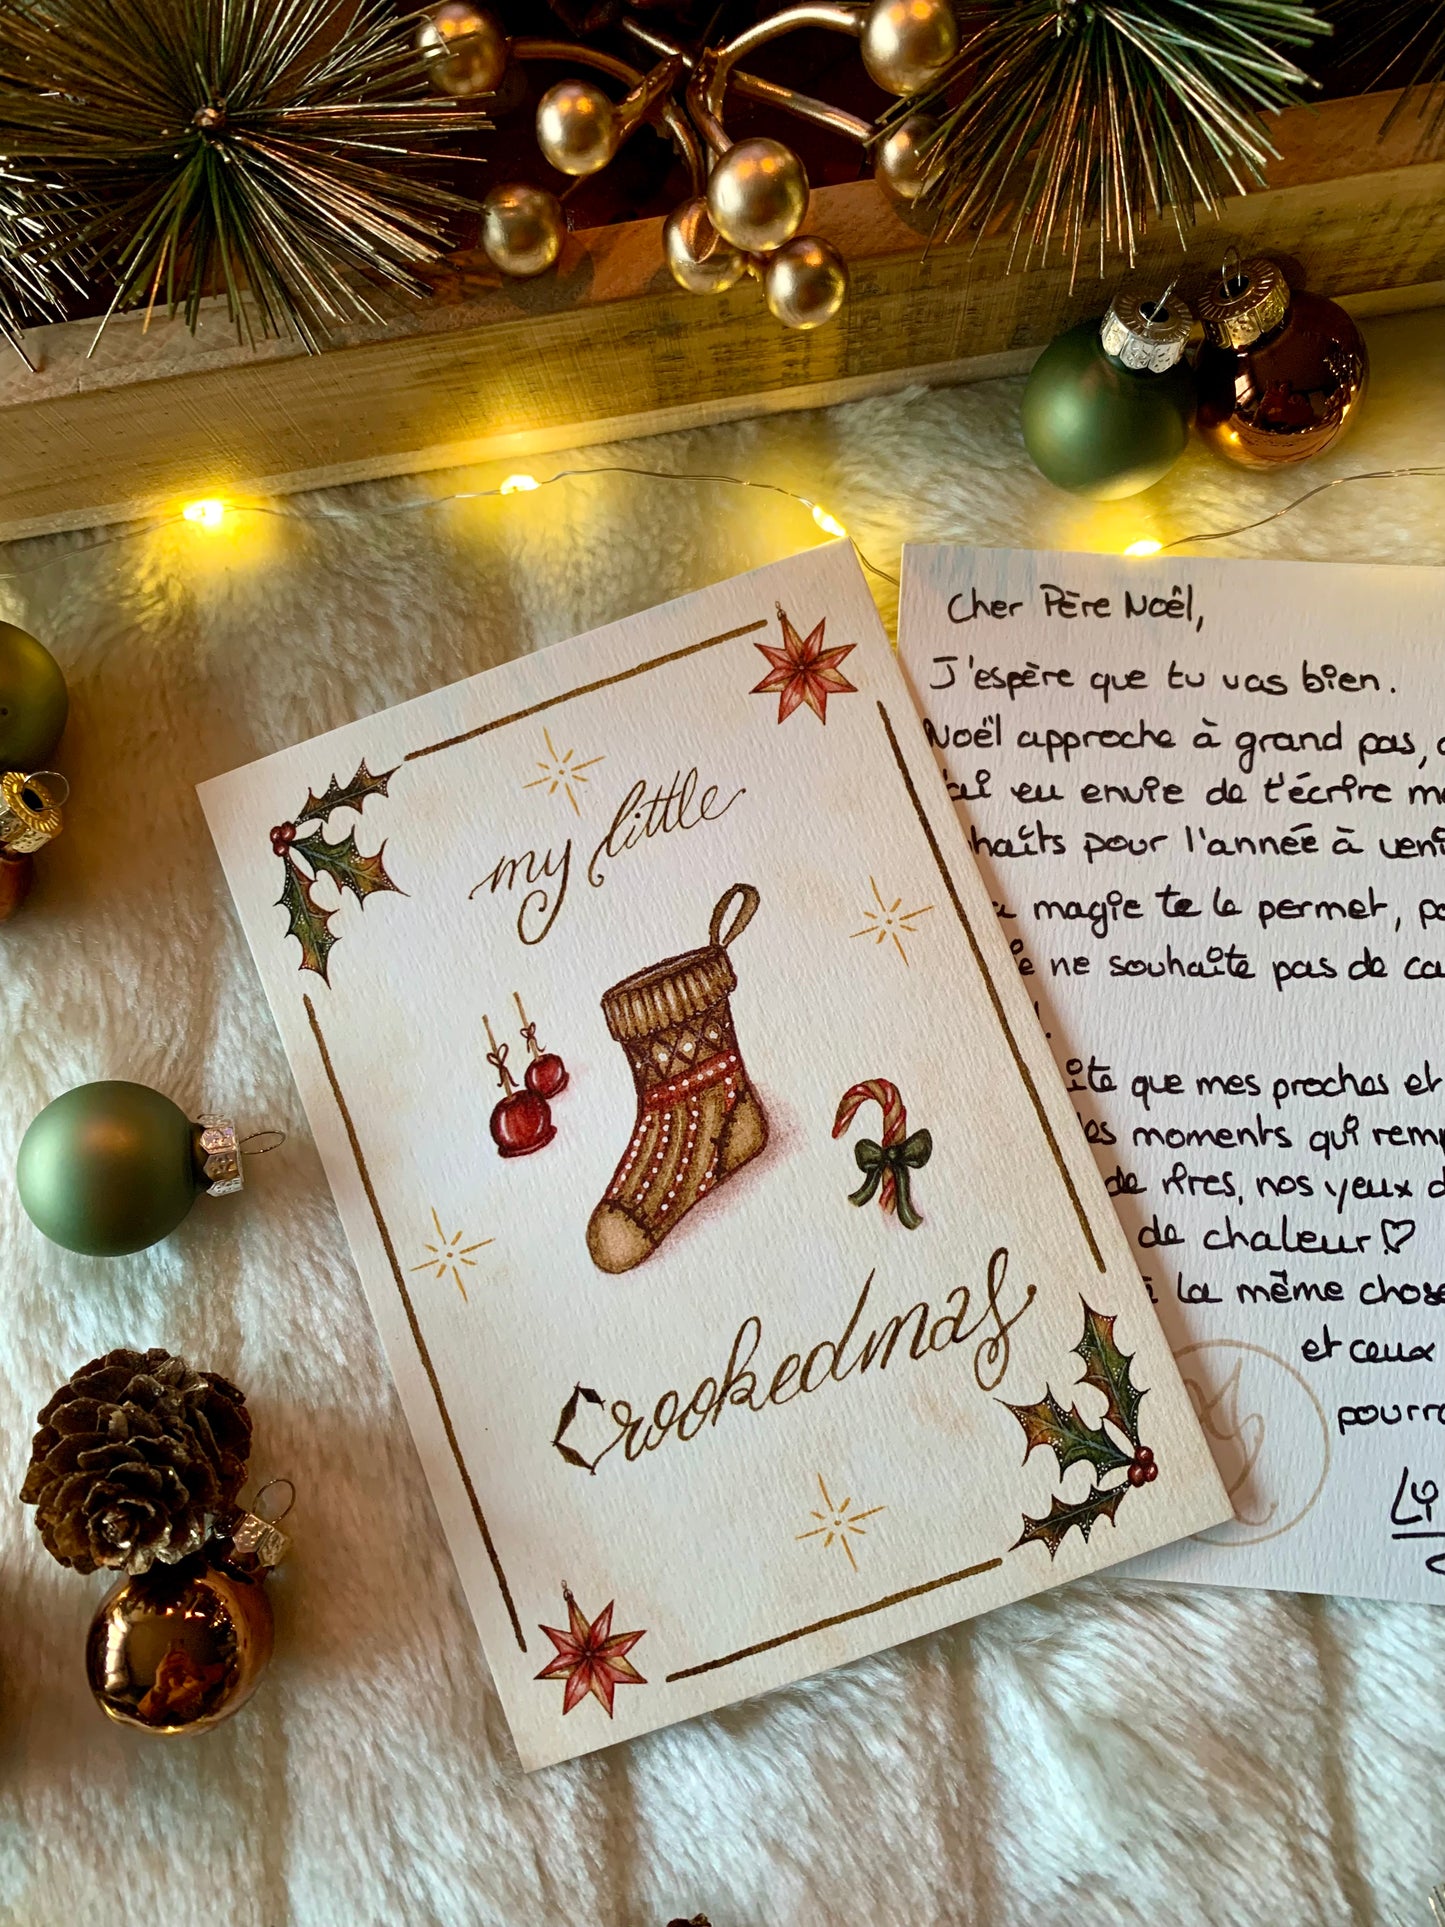 my little
Crookedmas
Cher Père Noël,
J'espère que tu vas bien.
Noël approche à grand pas,
j'ai eu envie de t'écrire
pour l'année à
magie te le permet,
ne souhaite pas de
que mes proches et
moments qui
de rires, nos yeux
de chaleur ♡
à la même chose
et ceux